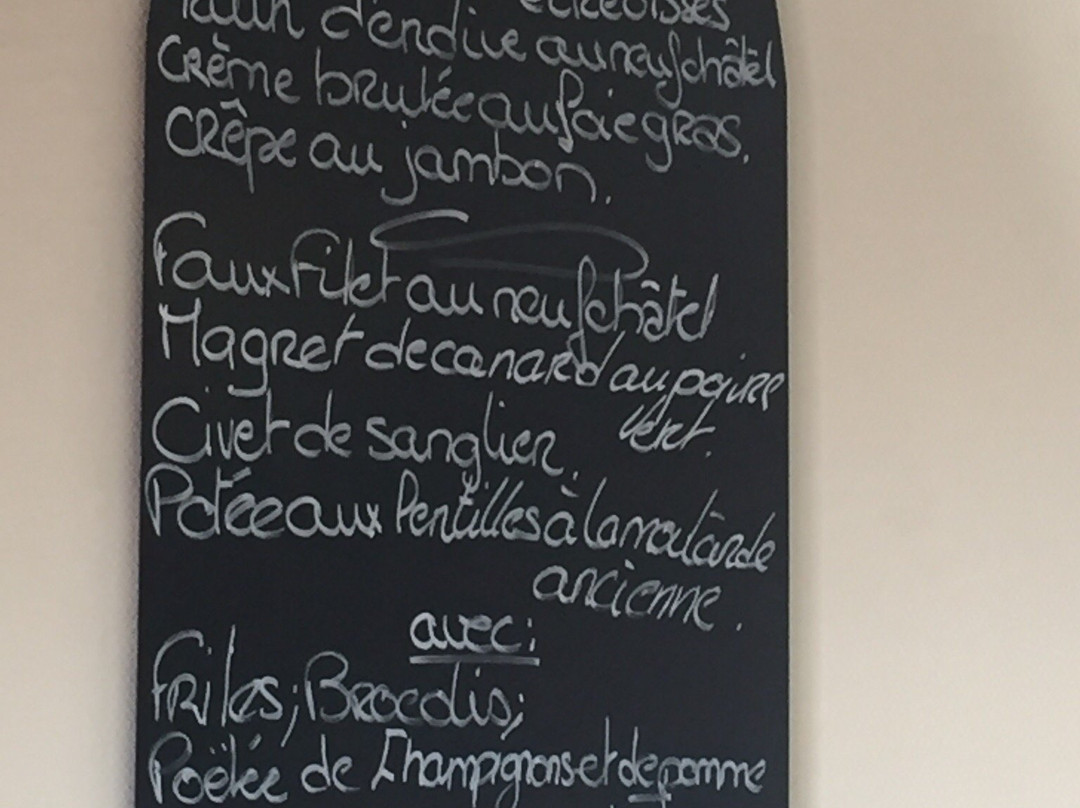 écrevisses
d'endive au neufchâtel
Crème brulée au foie gras.
Crêpe au jambon.
Faux Filet au neufchâtel
Magret de canard au poivre
vert.
Civet de sanglier.
Potée aux lentilles à la moutarde
ancienne.
avec:
Frites; Brocolis;
Poëlée de Champignons et de pomme